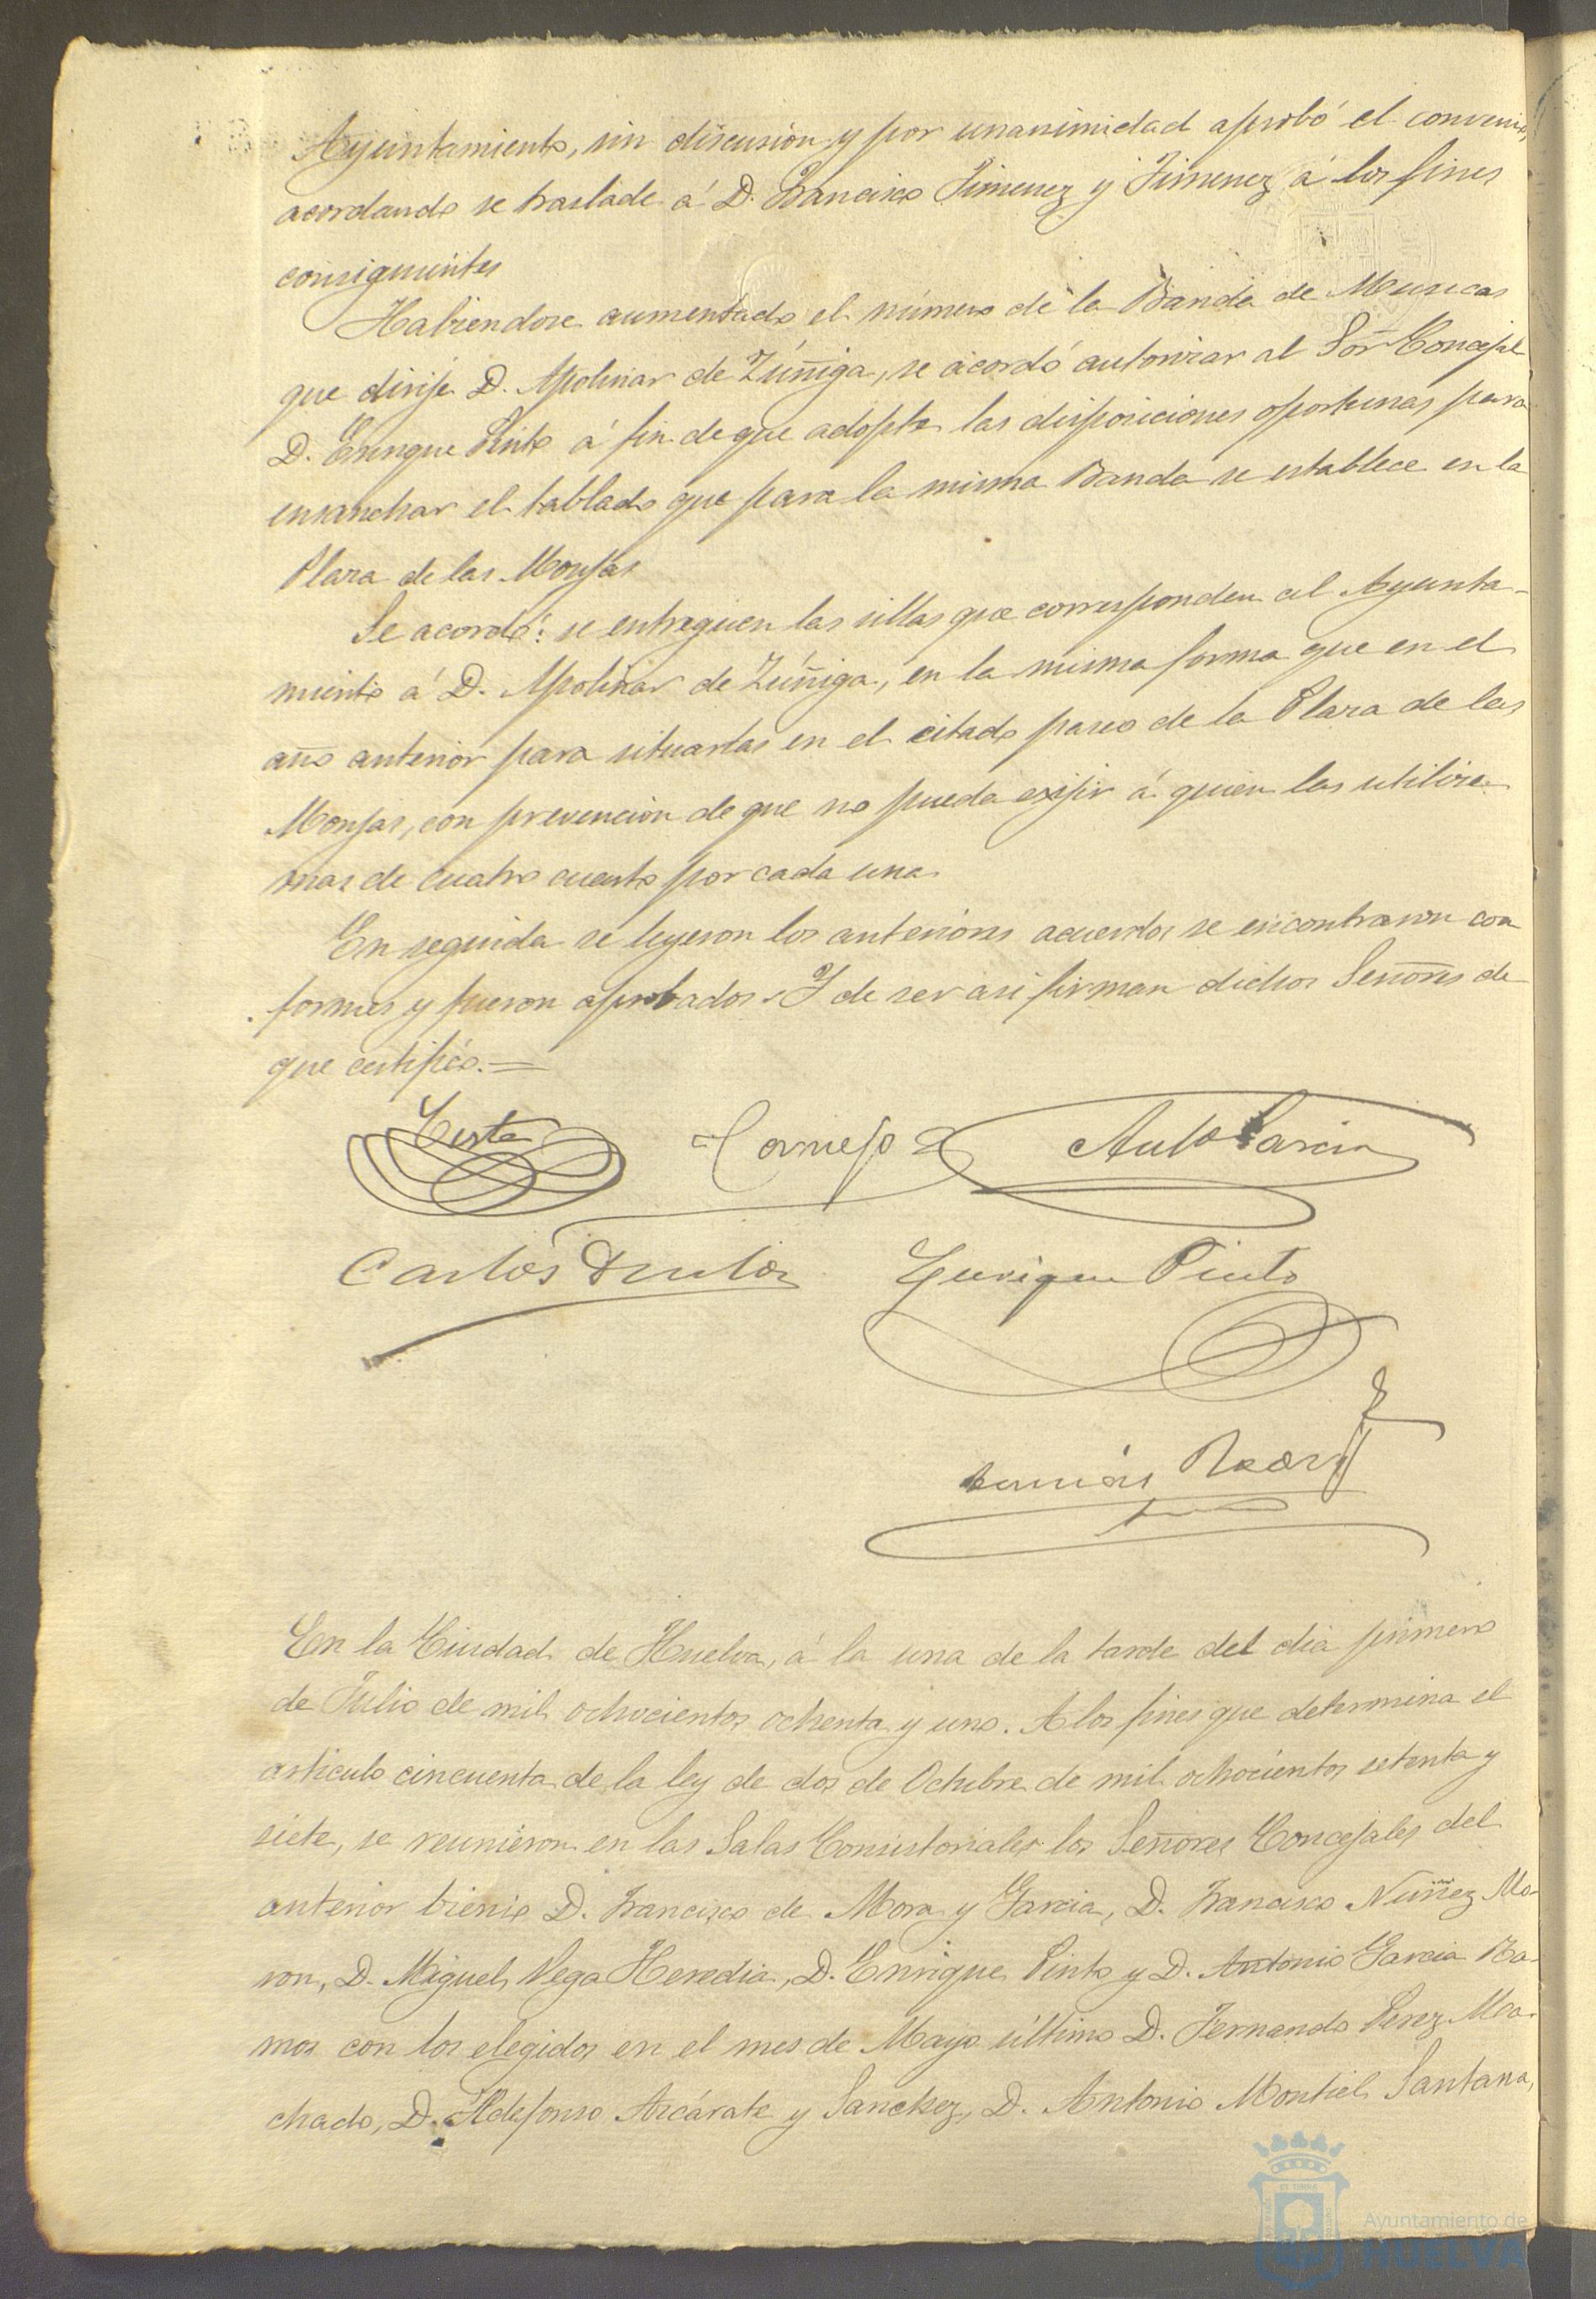 Ayuntamiento, sin discusion y por unanimidad aprobó el convenio,
acordando se traslade á D. Francisco Jimenez y Jimenez á los fines
consiguientes
Habiendose aumentado el número de la Banda de Musicas
que dirije D. Apolinar de Zúñiga, se acordó autorizar al Sor Concejal
D. Enrique Pinto á fin de que adopte las disposiciones oportunas para
ensanchar el tablado que para la misma Banda se establece en la
Plaza de las Monjas
Se acordó: se entreguen las sillas que corresponden al Ayunta-
miento á D. Apolinar de Zúñiga, en la misma forma que en el
año anterior para situarlas en el citado paseo de la Plaza de las
Monjas, con prevencion de que no pueda exijir á quien las utilize
mas de cuatro cuartos por cada una.
En seguida se leyeron los anteriores acuerdos se encontraron con
formes y fueron aprobados. Y de ser asi firman dichos Señores de
que certifico.=
Cornejo Anto Garcia
Carlos Enrique Pinto
En la Ciudad de Huelva, á la una de la tarde del dia primero
de Julio de mil ochocientos ochenta y uno. A los fines que determina el
articulo cincuenta de la ley de dos de Octubre de mil ochocientos setenta y
siete, se reunieron en las Salas Consistoriales los Señores Concejales del
anterior bienio D. Francisco de Mora y Garcia, D. Francisco Nuñez Mo-
ron, D. Miguel Vega Heredia, D. Enrique Pinto y D. Antonio Garcia Ra-
mos con los elegidos en el mes de Mayo último D. Fernando Perez Ma-
chado, D. Ildefonso Azcárate y Sanchez, D. Antonio Montiel Santana,
Ayuntamiento de
HUELVA